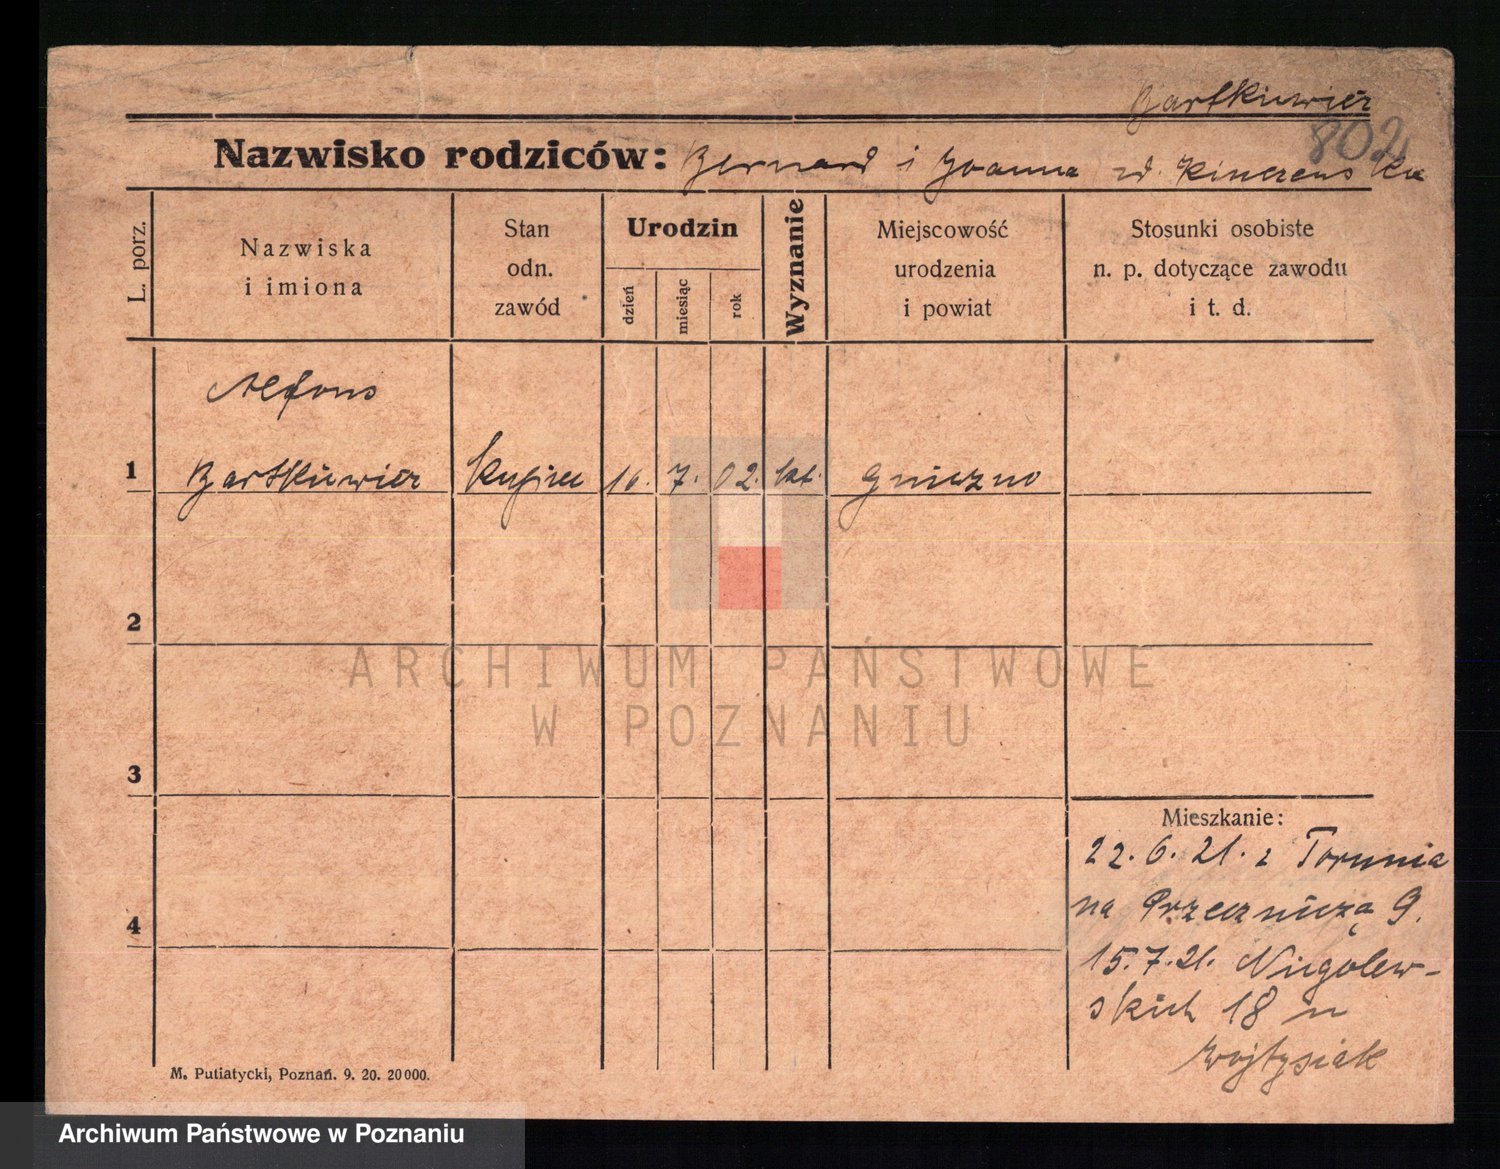 Bartkiewicz
802
Nazwisko rodziców: Bernard i Joanna zd.
L. porz.
Nazwiska
i imiona
Stan
odn.
zawód
Urodzin
dzień
miesiąc
rok
Wyznanie
Miejscowość
urodzenia
i powiat
Stosunki osobiste
n. p. dotyczące zawodu
i t. d.
Alfons
1 Bartkiewicz kupiec 16. 7. 02. kat. Gniezno
2
3
4
ARCHIWUM PAŃSTWOWE
W POZNANIU
Mieszkanie:
22. 6. 21. z Torunia
na Przecznicą 9.
15. 7. 21. Niegolew-
skich 18 u
Wojtysiak
M. Putiatycki, Poznań. 9. 20. 20000.
Archiwum Państwowe w Poznaniu